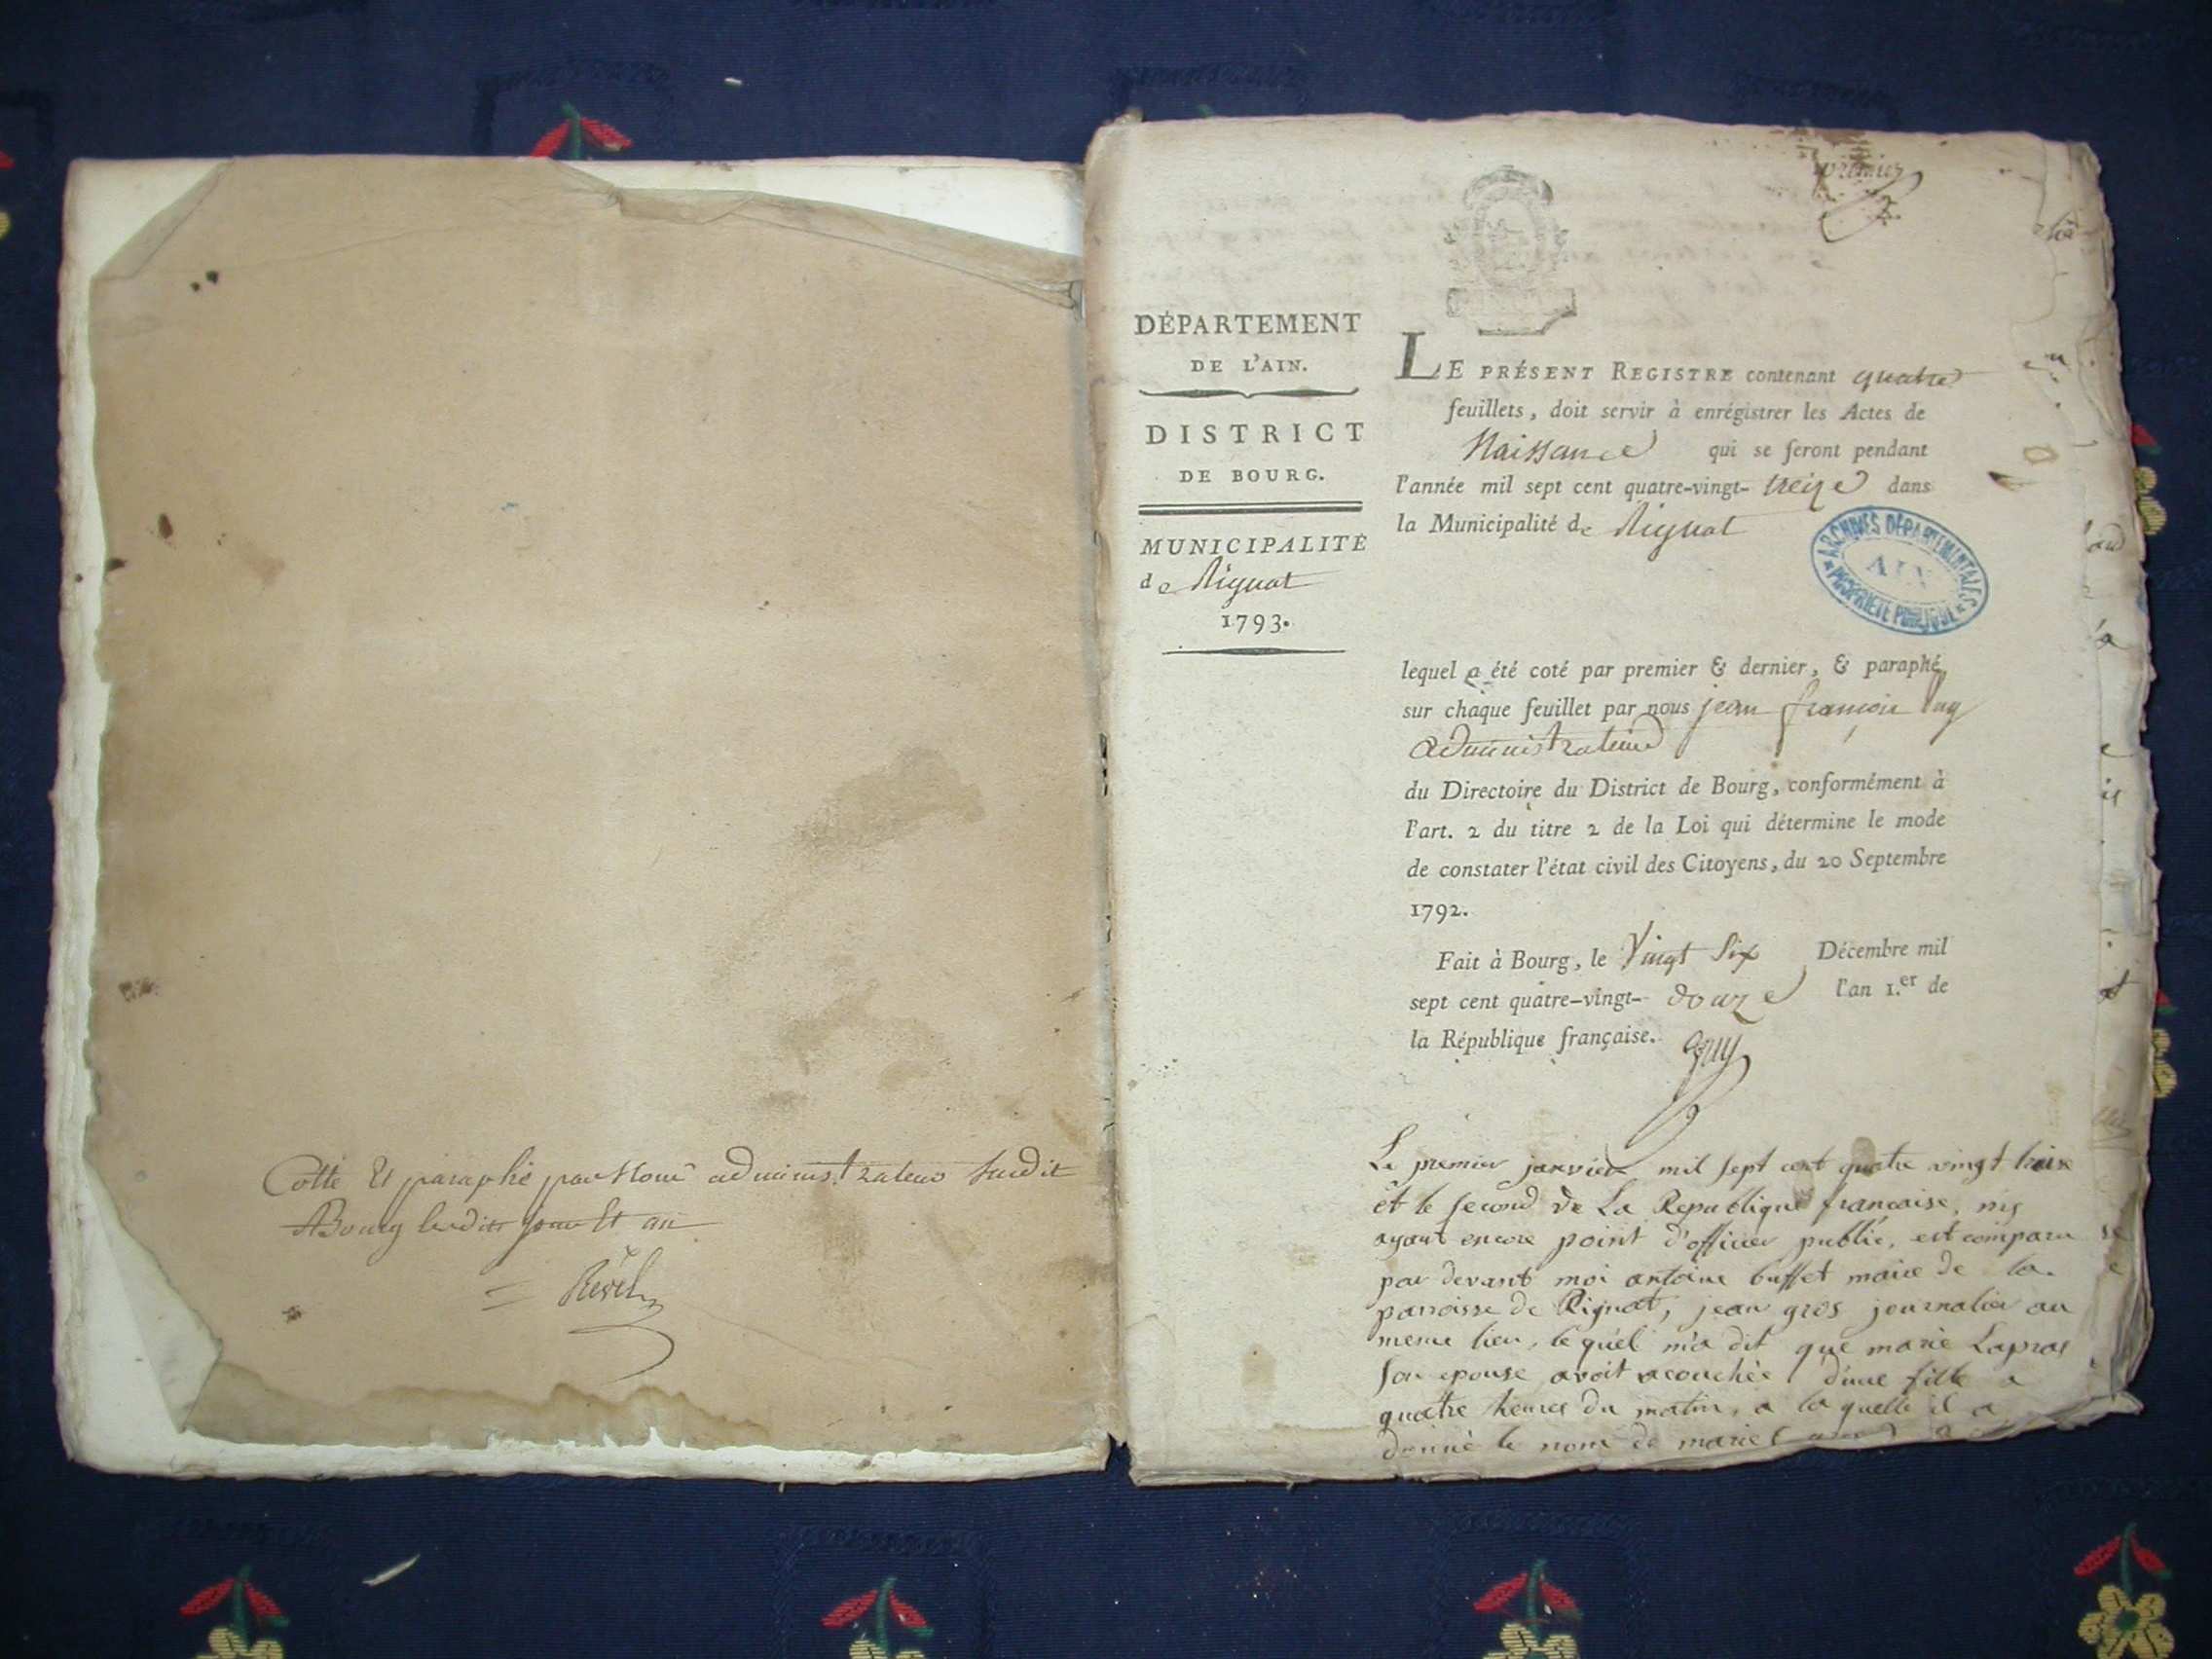 Cotté Et paraphé par Nous administrateur Susdit
ABourg lesdits jour Et an
Revel
premier
DÉPARTEMENT
DE L'AIN.
DISTRICT
DE BOURG.
MUNICIPALITÉ
de Rignat
1793.
LE PRÉSENT REGISTRE contenant quatre
feuillets, doit servir à enrégistrer les Actes de
Naissance qui se feront pendant
l'année mil sept cent quatre-vingt-treize dans
la Municipalité de Rignat
ARCHIVES DÉPARTEMENTALES
AIN
PROPRIÉTÉ PUBLIQUE
lequel a été coté par premier & dernier, & paraphé
sur chaque feuillet par nous jean françois
administrateur
du Directoire du District de Bourg, conformément à
l'art. 2 du titre 2 de la Loi qui détermine le mode
de constater l'état civil des Citoyens, du 20 Septembre
1792.
Fait à Bourg, le Vingt Six Décembre mil
sept cent quatre-vingt-douze l'an 1.er de
la République française.
Le premier janvier mil sept cent quatre vingt treize
et le second de La Republique francaise, ny
ayant encore point d'officier public, est comparu
par devant moi antoine buffet maire de la
parroisse de Rignat, jean gros journalier au
meme lieu, lequel m'a dit que marie Lapras
son epouse avoit acouchée d'une fille a
quatre heures du matin, a laquelle il a
donné le nom de marie